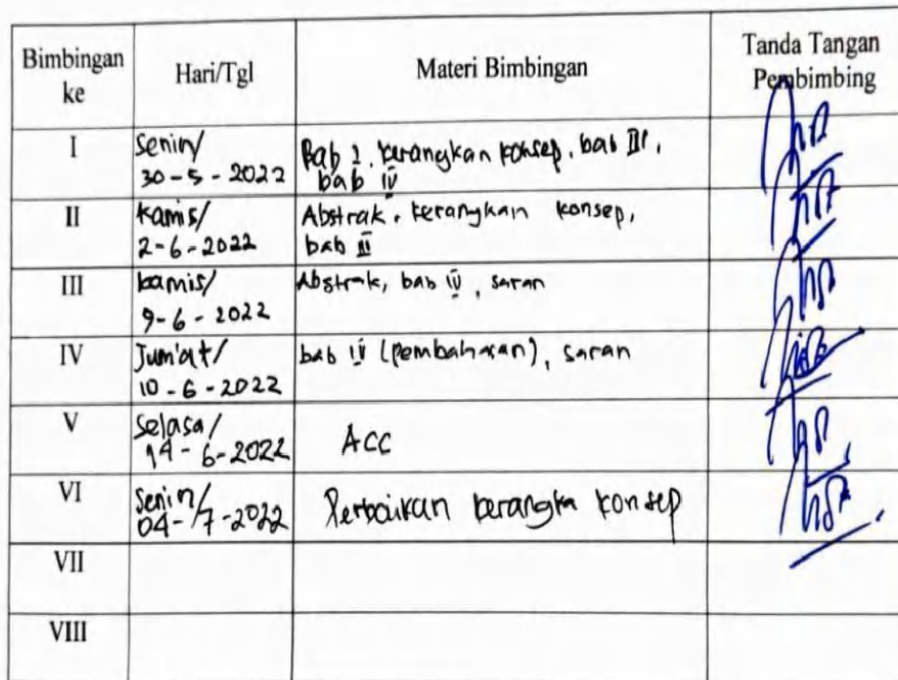 Bimbingan ke
Hari/Tgl
Materi Bimbingan
Tanda Tangan Pembimbing
I
Senin/
30-5-2022
Bab 2, kerangkan konsep, bab III,
bab IV
II
Kamis/
2-6-2022
Abstrak, kerangkan konsep,
bab III
III
kamis/
9-6-2022
Abstrak, bab IV, saran
IV
Jum'at/
10-6-2022
bab IV (pembahasan), saran
V
Selasa/
14-6-2022
ACC
VI
Senin/
04-7-2022
Perbaikan kerangka konsep
VII
VIII